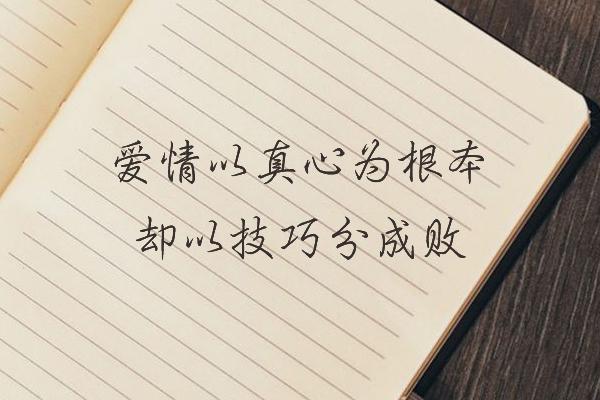 爱情以真心为根本
却以技巧分成败